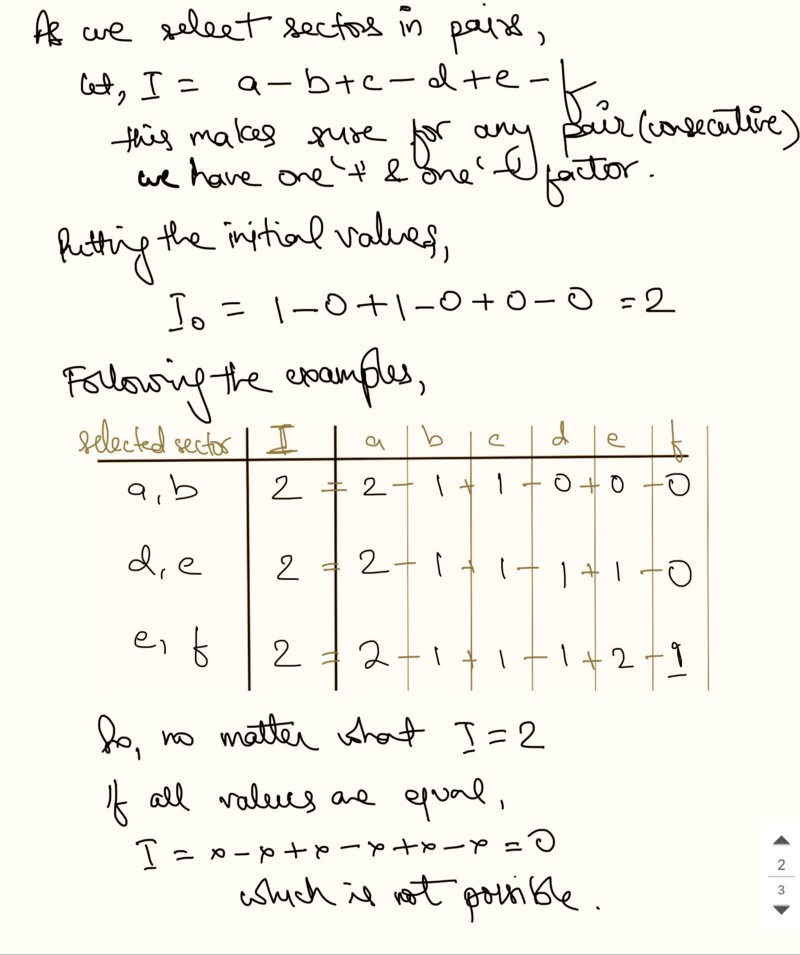 As we select sectors in pairs,
let, I = a-b+c-d+e-f
this makes sure for any pair (consecutive)
we have one '+' & one '-' factor.
Putting the initial values,
I₀ = 1-0+1-0+0-0 = 2
Following the examples,
selected sector | I | a | b | c | d | e | f
a, b | 2 = 2 - 1 + 1 - 0 + 0 - 0
d, e | 2 = 2 - 1 + 1 - 1 + 1 - 0
e, f | 2 = 2 - 1 + 1 - 1 + 2 - 1
So, no matter what I = 2
If all values are equal,
I = x-x+x-x+x-x = 0
which is not possible.
2
3